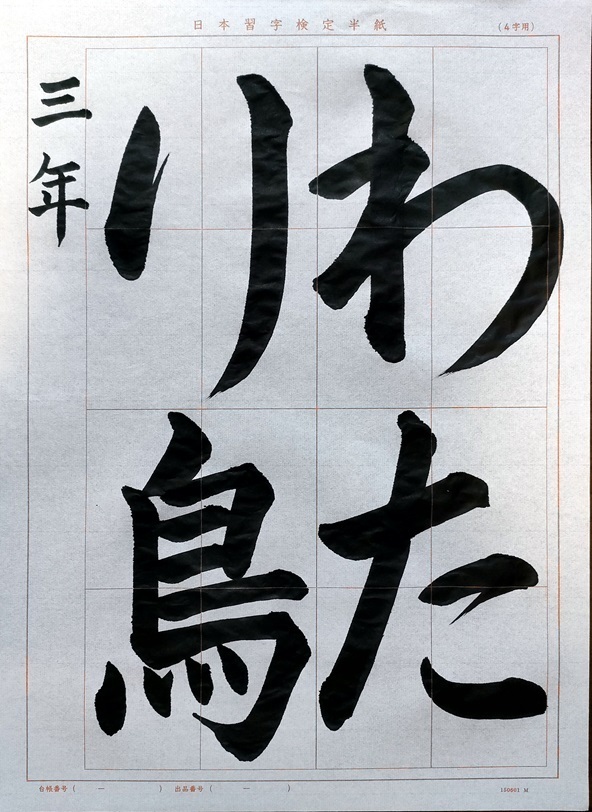 日本習字検定半紙
(4字用)
わた
り鳥
三年
台帳番号 ( ー ) 出品番号 ( ー )
150601 M